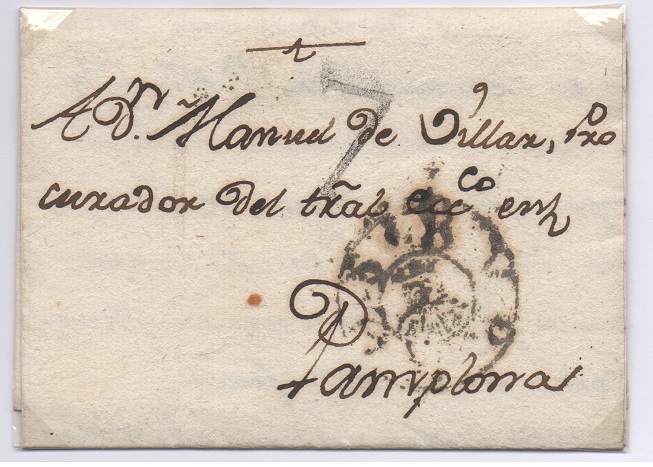 7
A Dn. Manuel de Villar, Pro
curador del tral eccco en
Pamplona